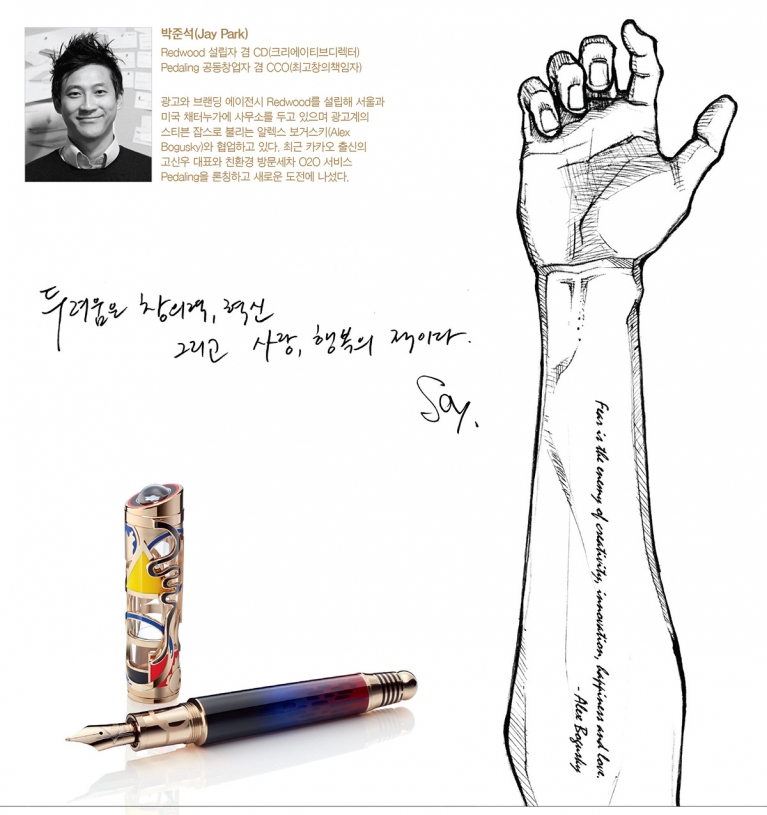 박준석(Jay Park)
Redwood 설립자 겸 CD(크리에이티브디렉터)
Pedaling 공동창업자 겸 CCO(최고창의책임자)
광고와 브랜딩 에이전시 Redwood를 설립해 서울과
미국 채터누가에 사무소를 두고 있으며 광고계의
스티븐 잡스로 불리는 알렉스 보거스키(Alex
Bogusky)와 협업하고 있다. 최근 카카오 출신의
고신우 대표와 친환경 방문세차 O2O 서비스
Pedaling을 론칭하고 새로운 도전에 나섰다.
두려움은 창의력, 혁신
그리고 사랑, 행복의 적이다.
Jay.
Fear is the enemy of creativity, innovation, happiness and love.
- Alex Bogusky